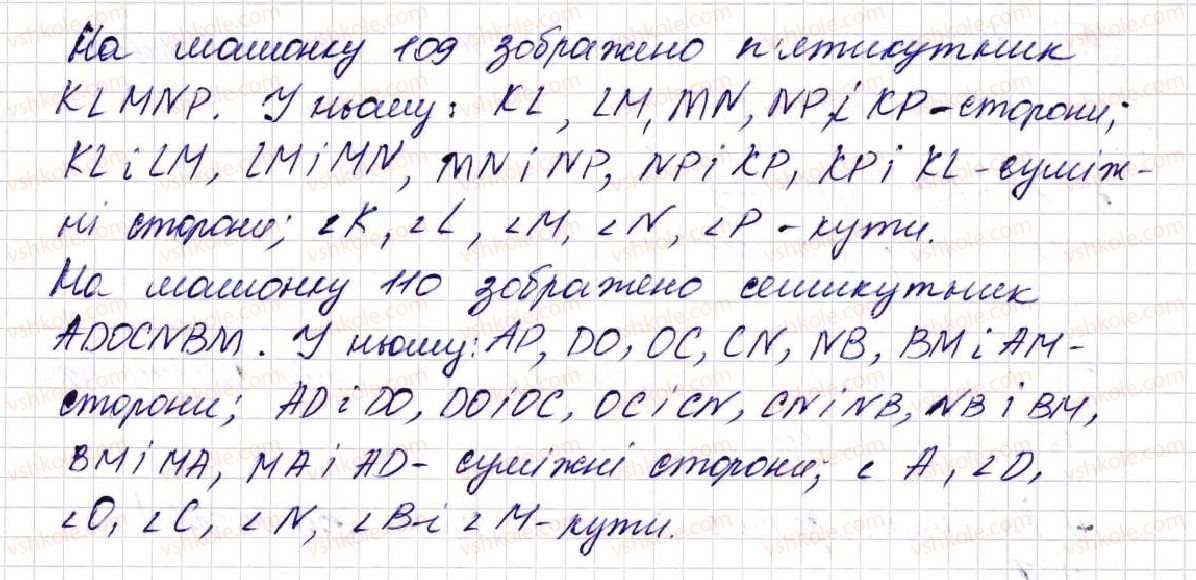 На малюнку 109 зображено п'ятикутник
KLMNP. У ньому: KL, LM, MN, NP і KP - сторони;
KL і LM, LM і MN, MN і NP, NP і KP, KP і KL - суміж-
ні сторони; ∠K, ∠L, ∠M, ∠N, ∠P - кути.
На малюнку 110 зображено семикутник
ADOCNBM. У ньому: AD, DO, OC, CN, NB, BM і AM -
сторони; AD і DO, DO і OC, OC і CN, CN і NB, NB і BM,
BM і MA, MA і AD - суміжні сторони; ∠A, ∠D,
∠O, ∠C, ∠N, ∠B і ∠M - кути.